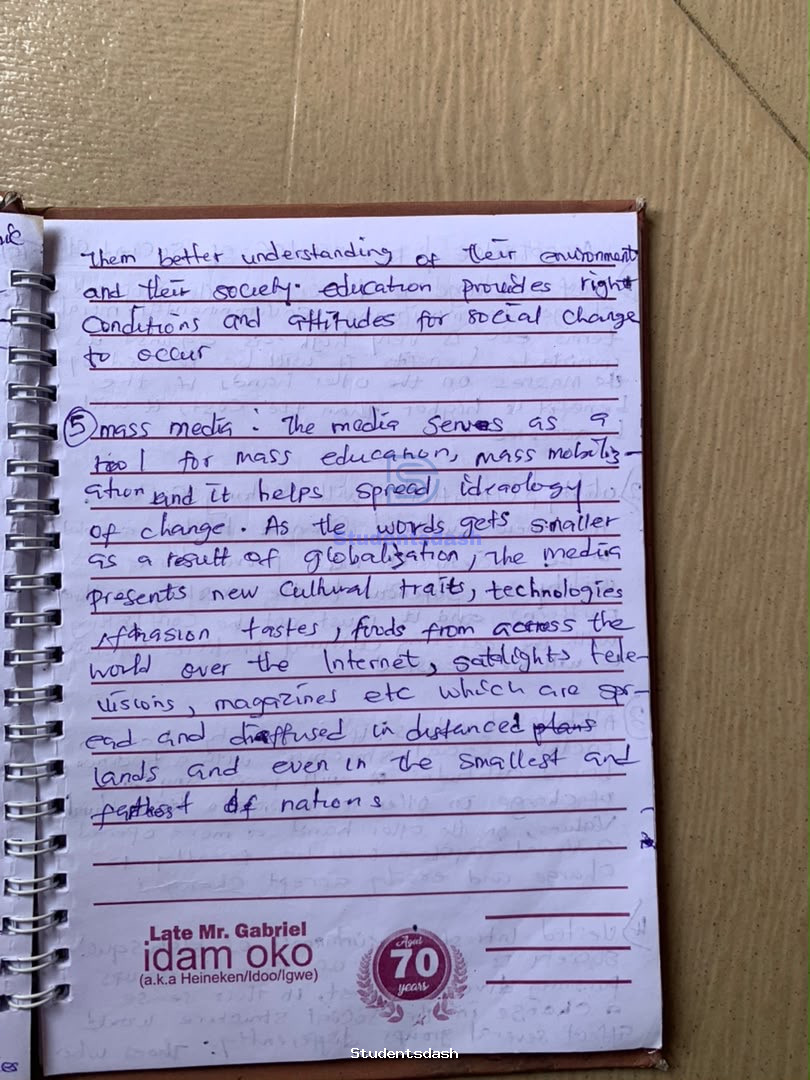 them better understanding of their environment
and their society. education provides right
Conditions and attitudes for social change
to occur
⑤ mass media : The media serves as a
tool for mass education, mass mobiliz-
ation and it helps spread ideaology
of change. As the words gets smaller
as a result of globalization, the media
presents new Cultural traits, technologies
tastes, foods from across the
world over the Internet, satelights tele-
visions, magazines etc which are spr-
ead and diaffused in distanced plans
lands and even in the smallest and
of nations
Late Mr. Gabriel
idam oko
(a.k.a Heineken/Idoo/Igwe)
Aged
70
years
Studentsdash
Studentsdash